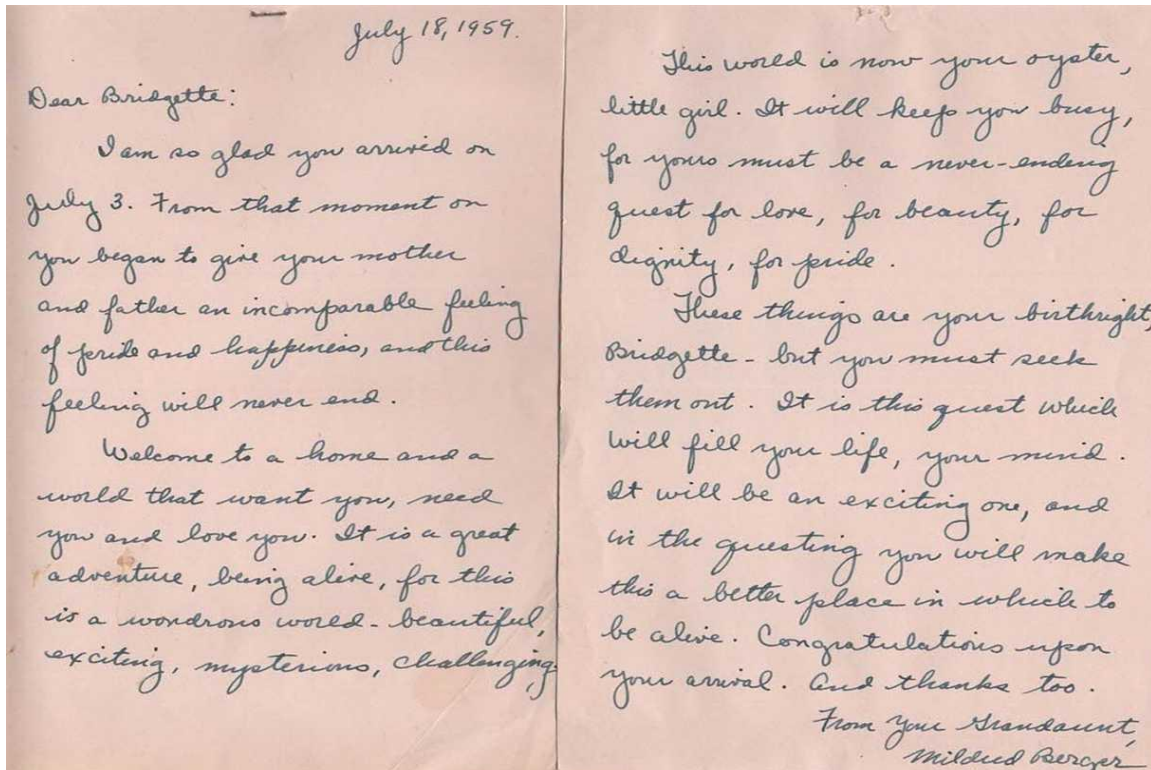 July 18, 1959.
Dear Bridgette:
I am so glad you arrived on
July 3. From that moment on
you began to give your mother
and father an incomparable feeling
of pride and happiness, and this
feeling will never end.
Welcome to a home and a
world that want you, need
you and love you. It is a great
adventure, being alive, for this
is a wondrous world - beautiful,
exciting, mysterious, challenging.
This world is now your oyster,
little girl. It will keep you busy,
for yours must be a never-ending
quest for love, for beauty, for
dignity, for pride.
These things are your birthright,
Bridgette - but you must seek
them out. It is this quest which
will fill your life, your mind.
It will be an exciting one, and
in the questing you will make
this a better place in which to
be alive. Congratulations upon
your arrival. And thanks too.
From your Grandaunt,
Mildred Berger